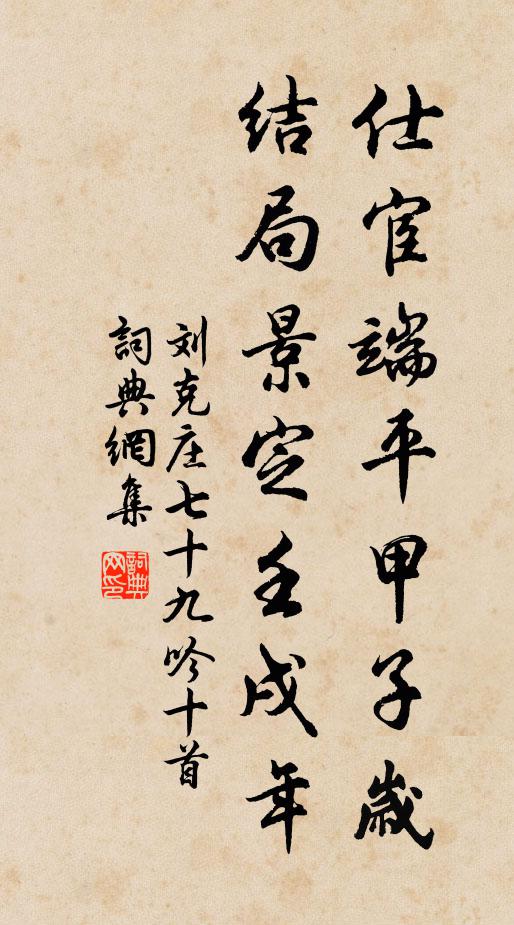 仕宦端平甲子歲
結局景定壬戌年
刘克庄七十九吟十首
詞典網集
詞典網印